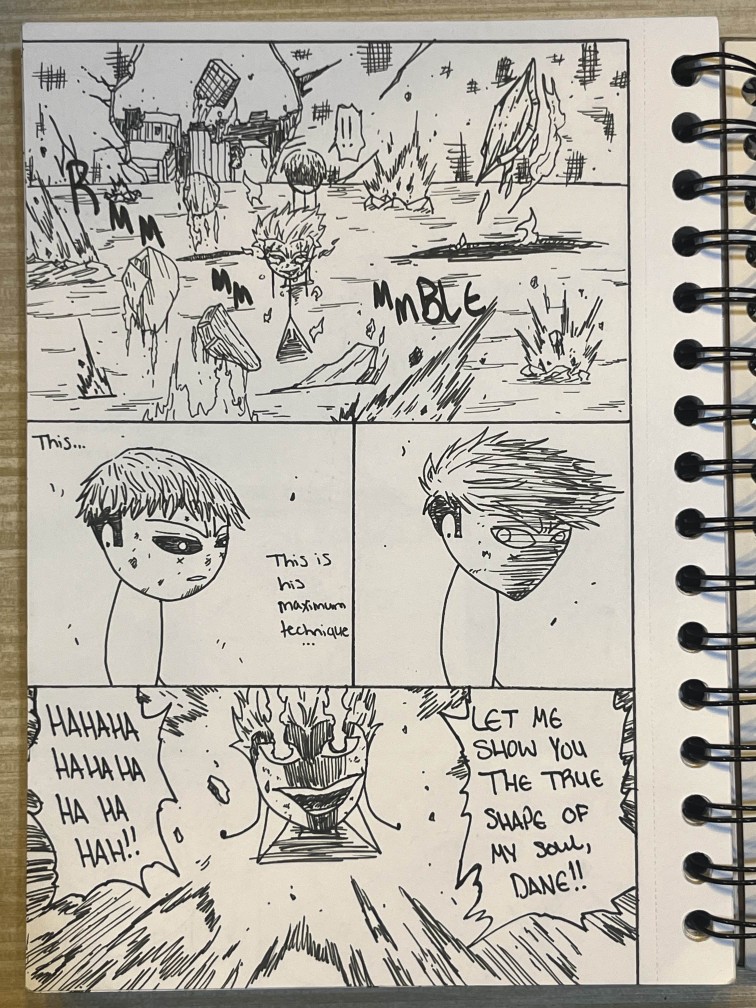 !!!
R
MM
MM
MMBLE
This...
This is
his
maximum
technique
...
HAHAHA
HAHAHA
HA HA
HAH!!
LET ME
SHOW YOU
THE TRUE
SHAPE OF
MY SOUL,
DANE!!